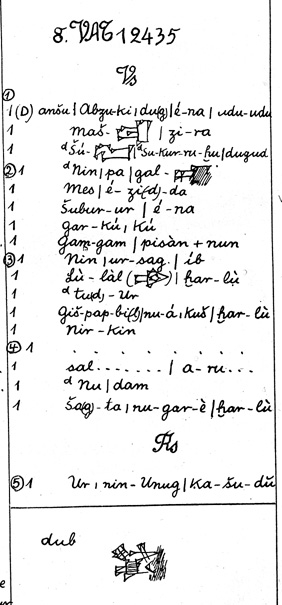 8. VAT 12435
Vs
① 1 (D) anšu | Abzu-ki | du(g) | é-na | udu-udu
1 maš- | zi-ra
1 ᵈšú- | ᵈšu-kur-ru-ḫu | dugud
② 1 ᵈNin | pa | gal-
1 Mes | é-zi(d)-da
1 Šubur-ur | é-na
1 gar-kú, kú
1 Gam-gam | pisàn + nun
③ 1 Nin | ur-sag. | íb
1 Lù-làl ( ) | ḫar-lù
1 ᵈtu(d)-ur
1 Giš-pap-bi(l) | nu-á, kuš | ḫar-lù
1 Nir-kin
④ 1 . . . . . . .
1 sal . . . . . . . | a-ru . . .
1 ᵈNu | dam
1 Ša(g)-ta | nu-gar-è | ḫar-lù
Rs
⑤ 1 Ur | nin-Unug | Ka-šu-dŭ
dub